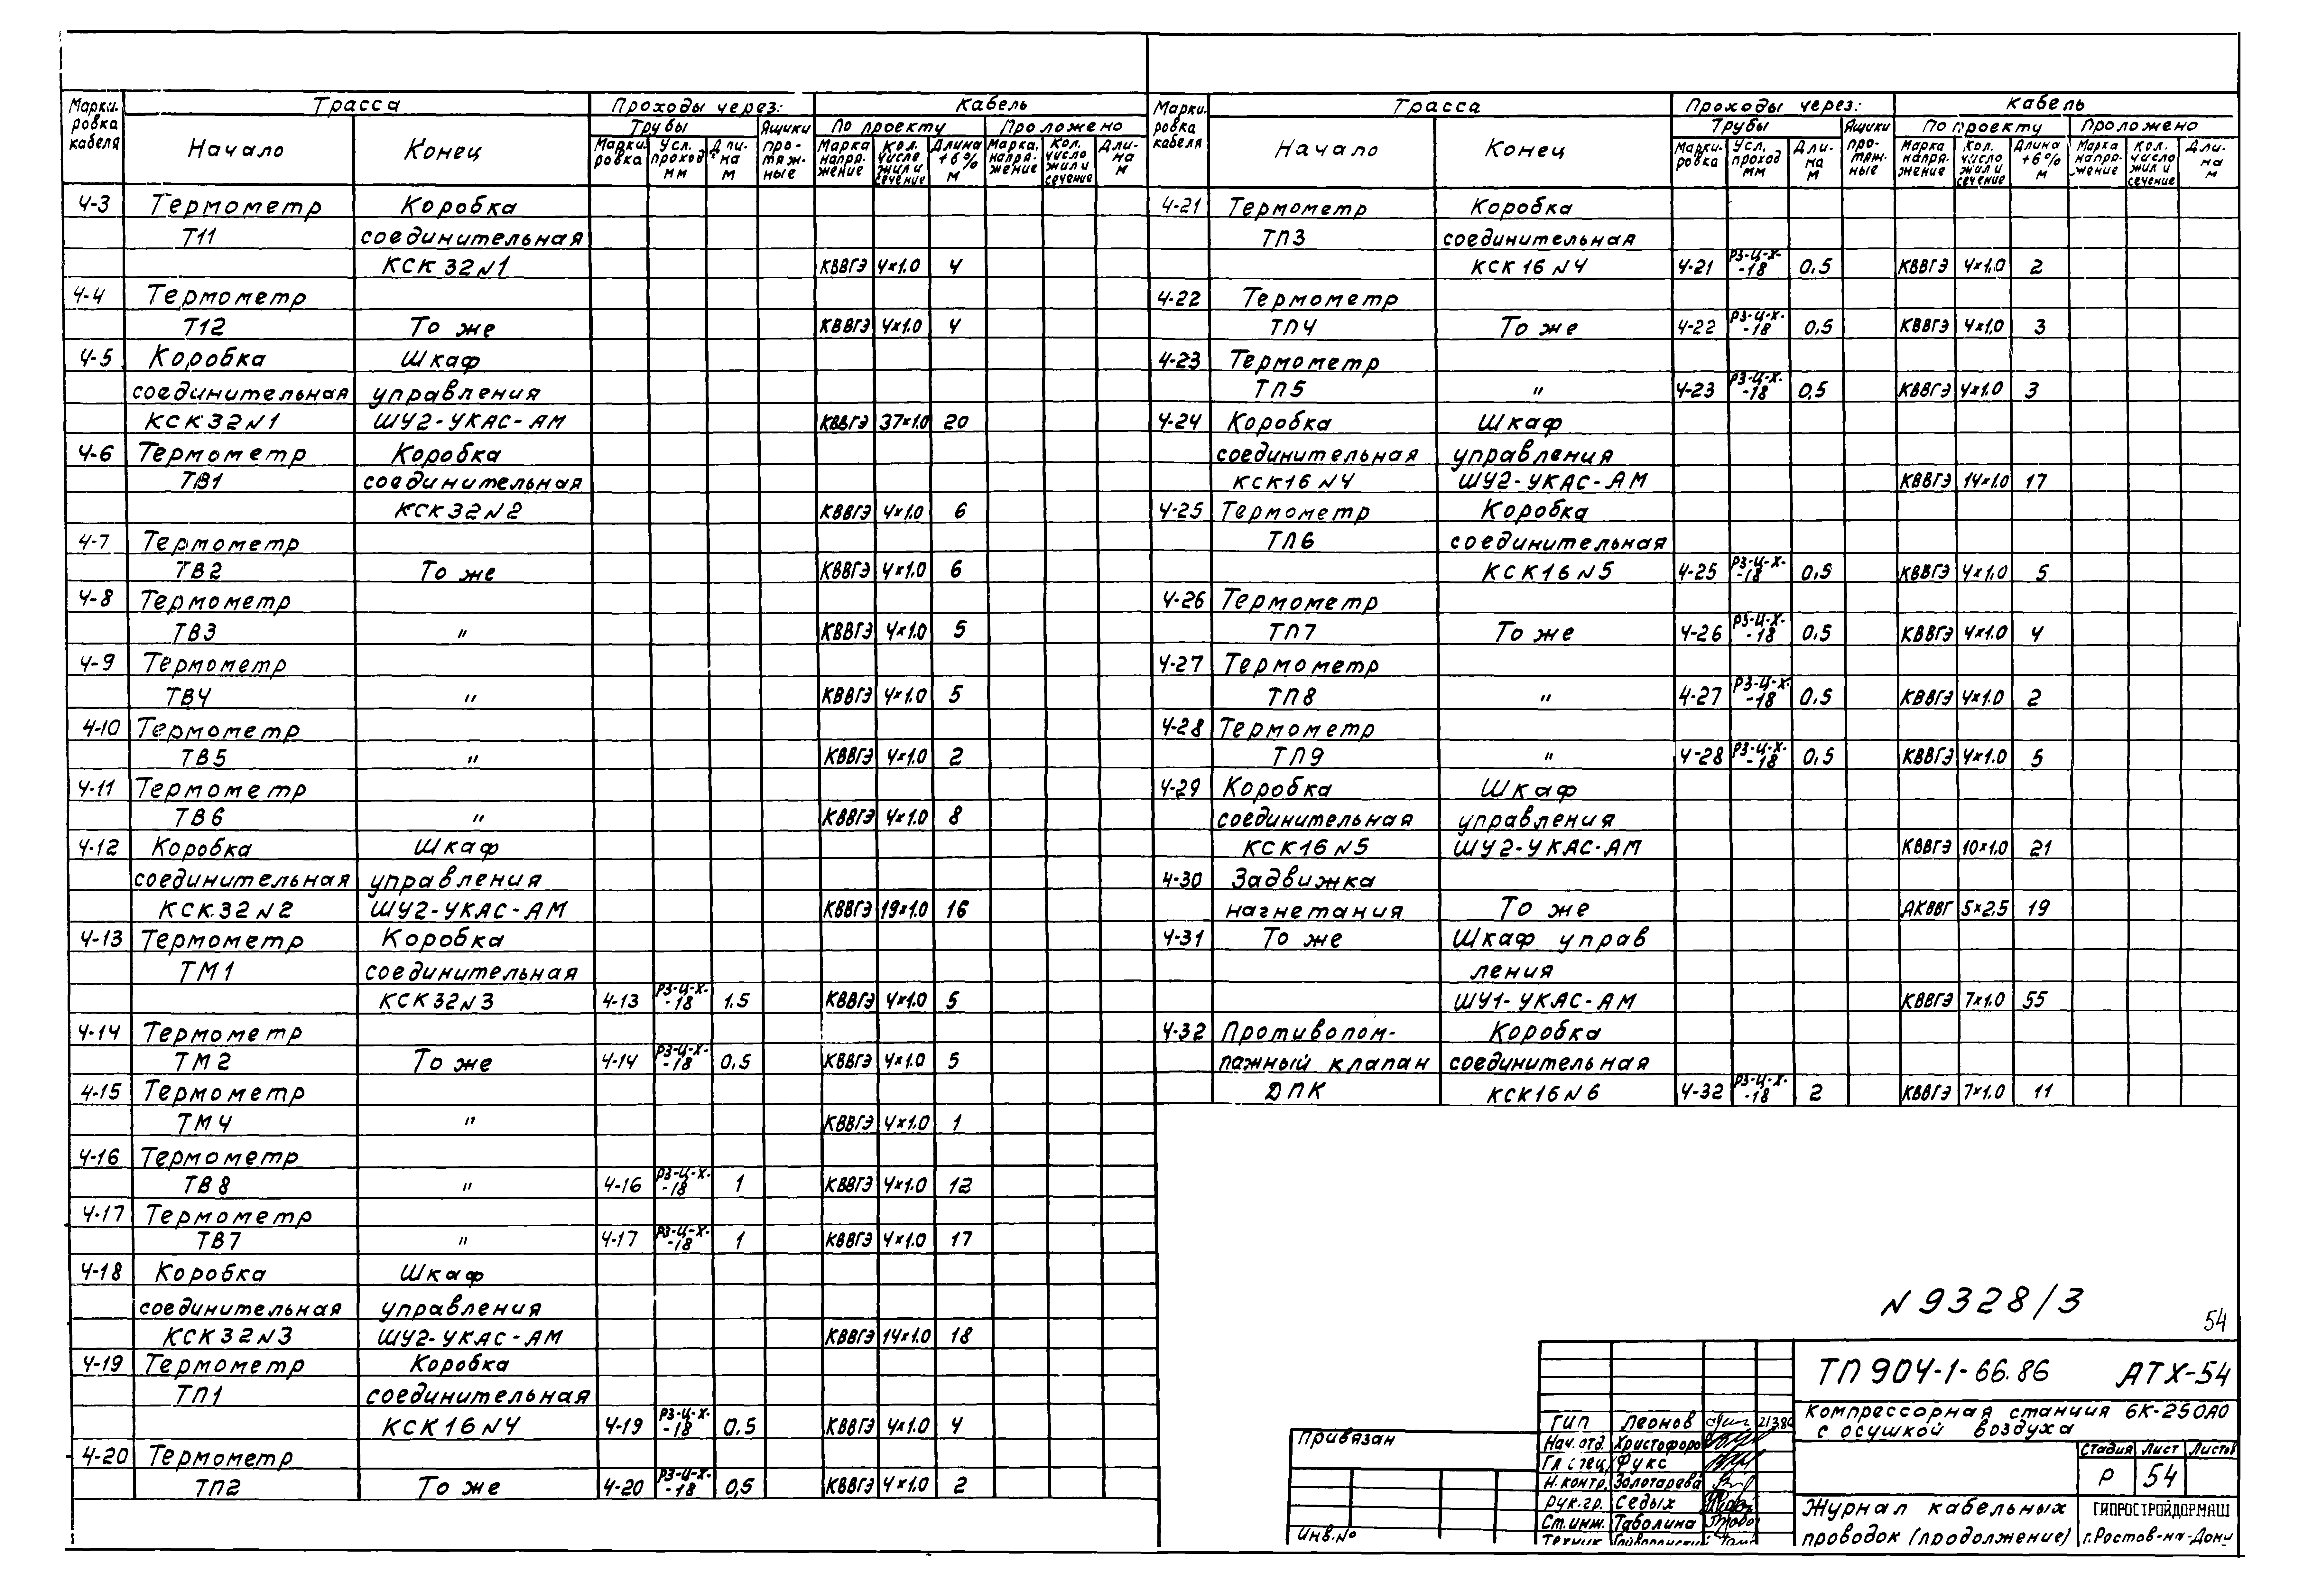 Марки- ровка кабеля | Трасса | Проходы через: | Кабель
Трубы | Ящики про- тяж- ные | По проекту | Проложено
Начало | Конец | Марки- ровка | Усл. проход мм | Дли- на м | Марка, напря- жение | Кол. число жил и сечение | Длина +6% м | Марка, напря- жение | Кол. число жил и сечение | Дли- на м
4-3 Термометр Коробка
Т11 соединительная
КСК 32 N1 КВВГЭ 4×1.0 4
4-4 Термометр
Т12 То же КВВГЭ 4×1.0 4
4-5 Коробка Шкаф
соединительная управления
КСК32N1 ШУ2-УКАС-АМ КВВГЭ 37×1.0 20
4-6 Термометр Коробка
ТВ1 соединительная
КСК32N2 КВВГЭ 4×1.0 6
4-7 Термометр
ТВ2 То же КВВГЭ 4×1.0 6
4-8 Термометр
ТВ3 " КВВГЭ 4×1.0 5
4-9 Термометр
ТВ4 " КВВГЭ 4×1.0 5
4-10 Термометр
ТВ5 " КВВГЭ 4×1.0 2
4-11 Термометр
ТВ6 " КВВГЭ 4×1.0 8
4-12 Коробка Шкаф
соединительная управления
КСК32N2 ШУ2-УКАС-АМ КВВГЭ 19×1.0 16
4-13 Термометр Коробка
ТМ1 соединительная
КСК32N3 4-13 РЗ-Ц-Х-18 1.5 КВВГЭ 4×1.0 5
4-14 Термометр
ТМ2 То же 4-14 РЗ-Ц-Х-18 0.5 КВВГЭ 4×1.0 5
4-15 Термометр
ТМ4 " КВВГЭ 4×1.0 1
4-16 Термометр
ТВ8 " 4-16 РЗ-Ц-Х-18 1 КВВГЭ 4×1.0 12
4-17 Термометр
ТВ7 " 4-17 РЗ-Ц-Х-18 1 КВВГЭ 4×1.0 17
4-18 Коробка Шкаф
соединительная управления
КСК32N3 ШУ2-УКАС-АМ КВВГЭ 14×1.0 18
4-19 Термометр Коробка
ТП1 соединительная
КСК16N4 4-19 РЗ-Ц-Х-18 0.5 КВВГЭ 4×1.0 4
4-20 Термометр
ТП2 То же 4-20 РЗ-Ц-Х-18 0,5 КВВГЭ 4×1.0 2
Марки- ровка кабеля | Трасса | Проходы через: | Кабель
Трубы | Ящики про- тяж- ные | По проекту | Проложено
Начало | Конец | Марки- ровка | Усл. проход мм | Дли- на м | Марка напря- жение | Кол. число жил и сечение | Длина +6% м | Марка напря- жение | Кол. число жил и сечение | Дли- на м
4-21 Термометр Коробка
ТП3 соединительная
КСК 16 N4 4-21 РЗ-Ц-Х-18 0.5 КВВГЭ 4×1.0 2
4-22 Термометр
ТП4 То же 4-22 РЗ-Ц-Х-18 0.5 КВВГЭ 4×1.0 3
4-23 Термометр
ТП5 " 4-23 РЗ-Ц-Х-18 0.5 КВВГЭ 4×1.0 3
4-24 Коробка Шкаф
соединительная управления
КСК16N4 ШУ2-УКАС-АМ КВВГЭ 14×1.0 17
4-25 Термометр Коробка
ТП6 соединительная
КСК16N5 4-25 РЗ-Ц-Х-18 0.5 КВВГЭ 4×1.0 5
4-26 Термометр
ТП7 То же 4-26 РЗ-Ц-Х-18 0.5 КВВГЭ 4×1.0 4
4-27 Термометр
ТП8 " 4-27 РЗ-Ц-Х-18 0.5 КВВГЭ 4×1.0 2
4-28 Термометр
ТП9 " 4-28 РЗ-Ц-Х-18 0.5 КВВГЭ 4×1.0 5
4-29 Коробка Шкаф
соединительная управления
КСК16N5 ШУ2-УКАС-АМ КВВГЭ 10×1.0 21
4-30 Задвижка
нагнетания То же АКВВГ 5×2.5 19
4-31 То же Шкаф управ
ления
ШУ1-УКАС-АМ КВВГЭ 7×1.0 55
4-32 Противопом- Коробка
пажный клапан соединительная
ДПК КСК16N6 4-32 РЗ-Ц-Х-18 2 КВВГЭ 7×1.0 11
N 9328/3
54
ТП 904-1-66.86 АТХ-54
Компрессорная станция 6К-250АО
с осушкой воздуха
Стадия Лист Листов
Р 54
Журнал кабельных
проводок (продолжение)
ГИПРОСТРОЙДОРМАШ
г.Ростов-на-Дону
ГИП Леонов
Нач. отд. Христофоро
Гл. спец. Фукс
Н. контр. Золотарева
Рук. гр. Седых
Ст. инж. Таболина
Техник
Привязан
Инв. No